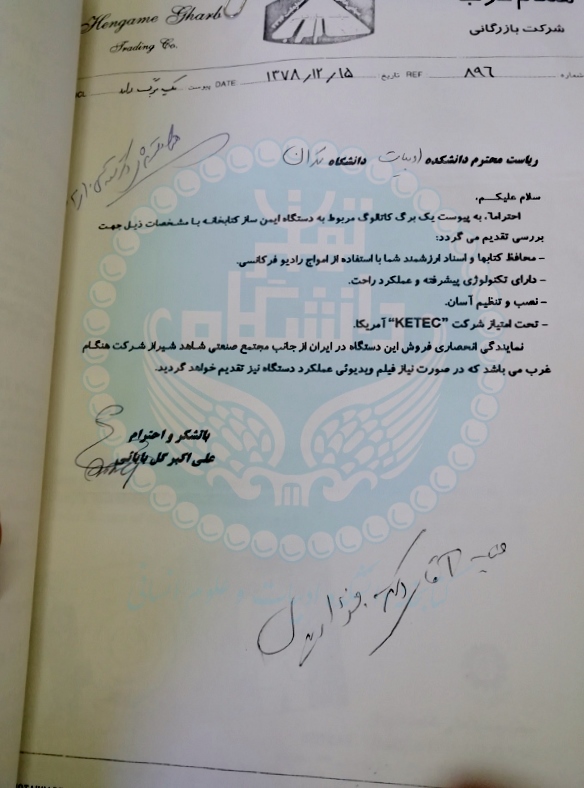 Hengame Gharb
Trading Co.
شرکت بازرگانی
شماره ۸۹۶ REF تاریخ ۱۳۷۸/۱۲/۱۵ DATE پیوست یک برگ دارد
ریاست محترم دانشکده ادبیات دانشگاه تهران
سلام علیکم.
احتراماً، به پیوست یک برگ کاتالوگ مربوط به دستگاه ایمن ساز کتابخانه با مشخصات ذیل جهت
بررسی تقدیم می گردد:
- محافظ کتابها و اسناد ارزشمند شما با استفاده از امواج رادیو فرکانسی.
- دارای تکنولوژی پیشرفته و عملکرد راحت.
- نصب و تنظیم آسان.
- تحت امتیاز شرکت "KETEC" آمریکا.
نمایندگی انحصاری فروش این دستگاه در ایران از جانب مجتمع صنعتی شاهد شیراز شرکت هنگام
غرب می باشد که در صورت نیاز فیلم ویدیوئی عملکرد دستگاه نیز تقدیم خواهد گردید.
باتشکر و احترام
علی اکبر گل بابائی
جناب آقای دکتر